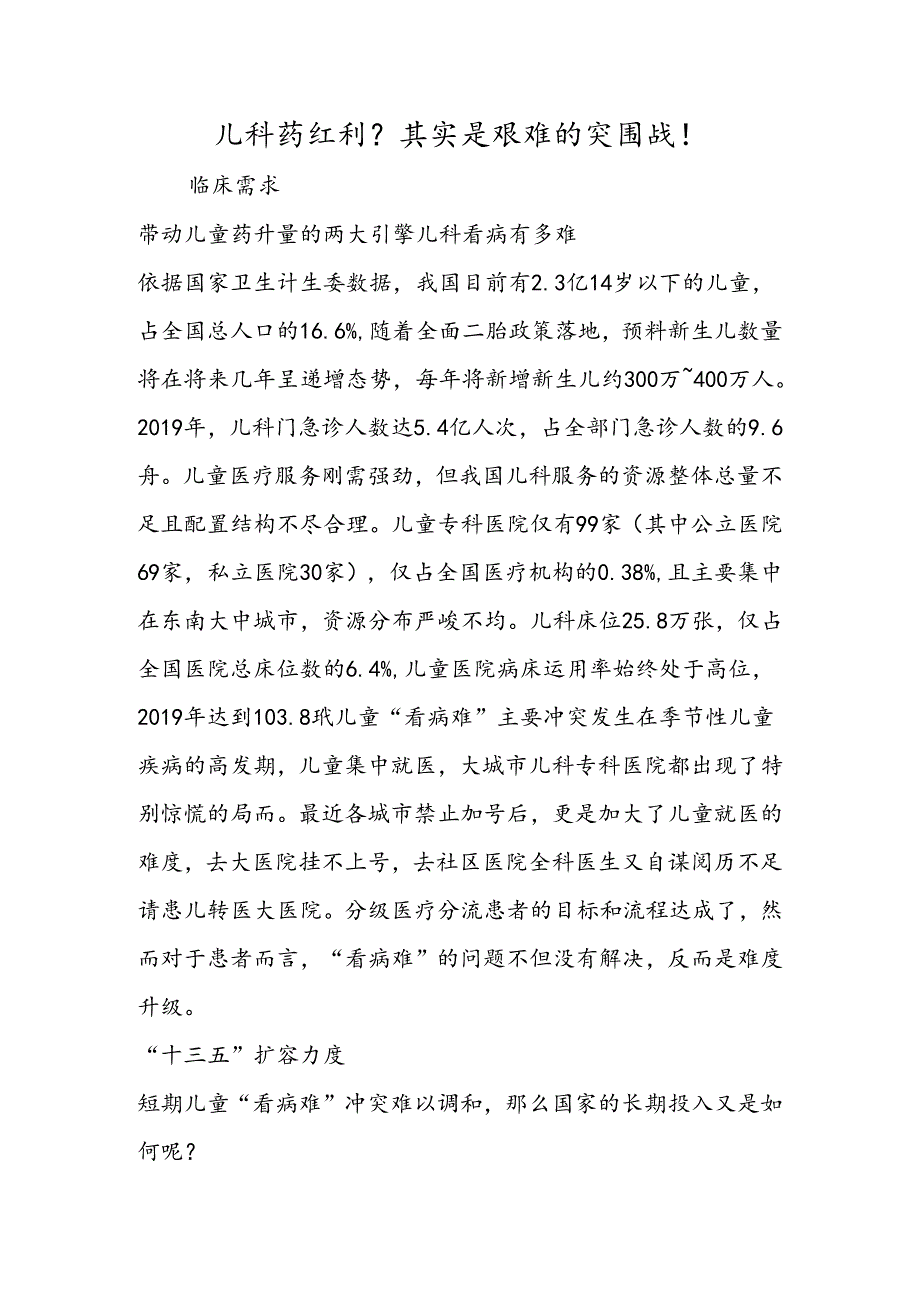 儿科药红利？其实是艰难的突围战！
临床需求
带动儿童药升量的两大引擎儿科看病有多难
依据国家卫生计生委数据，我国目前有2.3亿14岁以下的儿童，
占全国总人口的16.6%,随着全面二胎政策落地，预料新生儿数量
将在将来几年呈递增态势，每年将新增新生儿约300万~400万人。
2019年，儿科门急诊人数达5.4亿人次，占全部门急诊人数的9.6
舟。儿童医疗服务刚需强劲，但我国儿科服务的资源整体总量不
足且配置结构不尽合理。儿童专科医院仅有99家（其中公立医院
69家，私立医院30家），仅占全国医疗机构的0.38%,且主要集中
在东南大中城市，资源分布严峻不均。儿科床位25.8万张，仅占
全国医院总床位数的6.4%,儿童医院病床运用率始终处于高位，
2019年达到103.8玳儿童“看病难”主要冲突发生在季节性儿童
疾病的高发期，儿童集中就医，大城市儿科专科医院都出现了特
别惊慌的局而。最近各城市禁止加号后，更是加大了儿童就医的
难度，去大医院挂不上号，去社区医院全科医生又自谋阅历不足
请患儿转医大医院。分级医疗分流患者的目标和流程达成了，然
而对于患者而言，“看病难”的问题不但没有解决，反而是难度
升级。
“十三五”扩容力度
短期儿童“看病难”冲突难以调和，那么国家的长期投入又是如
何呢？